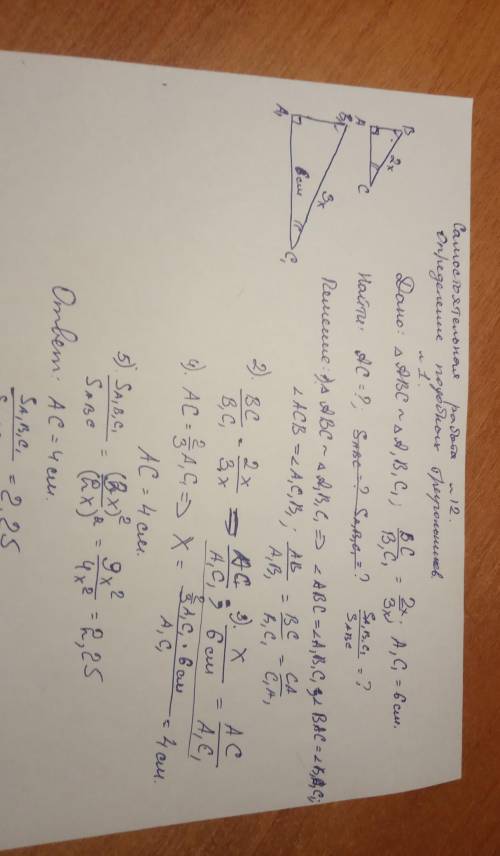 Самостоятельная работа №12.
Определение подобных треугольников.
№1.
Дано: △ABC ~ △A₁B₁C₁; BC/B₁C₁ = 2x/3x; A₁C₁ = 6 см.
Найти: AC = ?, S_ABC = ? S_A₁B₁C₁ = ? S_A₁B₁C₁/S_ABC = ?
Решение: 1) △ABC ~ △A₁B₁C₁ ⇒ ∠ABC = ∠A₁B₁C₁; ∠BAC = ∠B₁A₁C₁;
∠ACB = ∠A₁C₁B₁; AB/A₁B₁ = BC/B₁C₁ = CA/C₁A₁
2). BC/B₁C₁ = 2x/3x ⇒ AC/A₁C₁; 3) x/6 см = AC/A₁C₁
4) AC = 2/3 A₁C₁ ⇒ x = 2/3 A₁C₁ · 6 см/A₁C₁ = 4 см.
AC = 4 см.
5). S_A₁B₁C₁/S_ABC = (3x)²/(2x)² = 9x²/4x² = 2,25
Ответ: AC = 4 см.
S_A₁B₁C₁ = 2,25
B
2x
A
C
B₁
3x
A₁
6 см
C₁